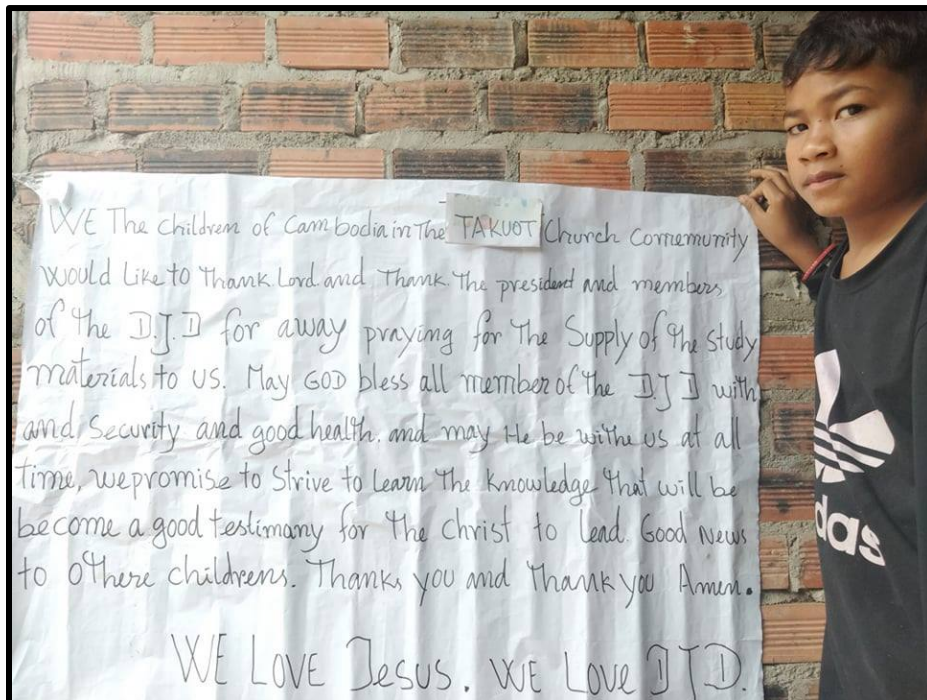 WE The children of Cambodia in The TAKUOT Church Comemunity
would Like to Thank Lord and Thank The president and members
of the D.J.D for away praying for The Supply of the study
materials to us. May GOD bless all member of the D.J D with
and Security and good health, and may He be withe us at all
Time, we promise to strive to Learn The knowledge That will be
become a good testimany for the christ to lead Good News
to othere childrens. Thanks you and Thank you Amen.
WE LOVE Jesus. WE Love D J D.
das